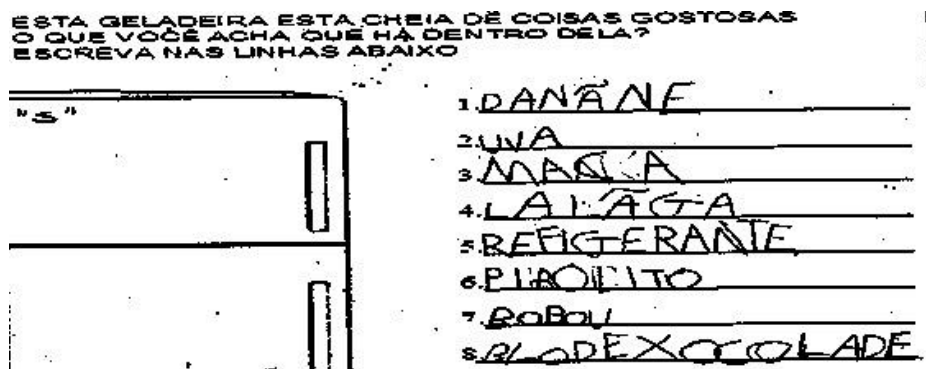 ESTA GELADEIRA ESTA CHEIA DE COISAS GOSTOSAS
O QUE VOCÊ ACHA QUE HÁ DENTRO DELA?
ESCREVA NAS LINHAS ABAIXO
"S"
1. DANÃNE
2. UVA
3. MANSA
4. LALÃGA
5. REFIGERANTE
6.
7. BOBOU
8. BLODEXOCOLADE